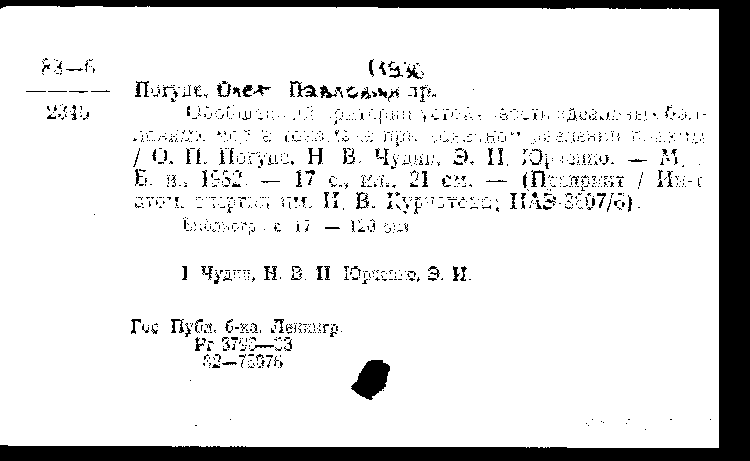 83—6
2345
(1936
Погуце, Олег Павлович и др.
Обобщенный критерий устойчивости идеальных бал-
лонных мод в токамаке при конечном давлении плазмы
/ О. П. Погуце, Н. В. Чудин, Э. И. Юрченко. — М.,
Б. и., 1982. — 17 с., ил., 21 см. — (Препринт / Ин-т
атом. энергии им. И. В. Курчатова; ИАЭ-3607/6).
Библиогр.: с. 17 — 120 экз.
I Чудин, Н. В. II Юрченко, Э. И.
Гос Публ. б-ка. Ленингр.